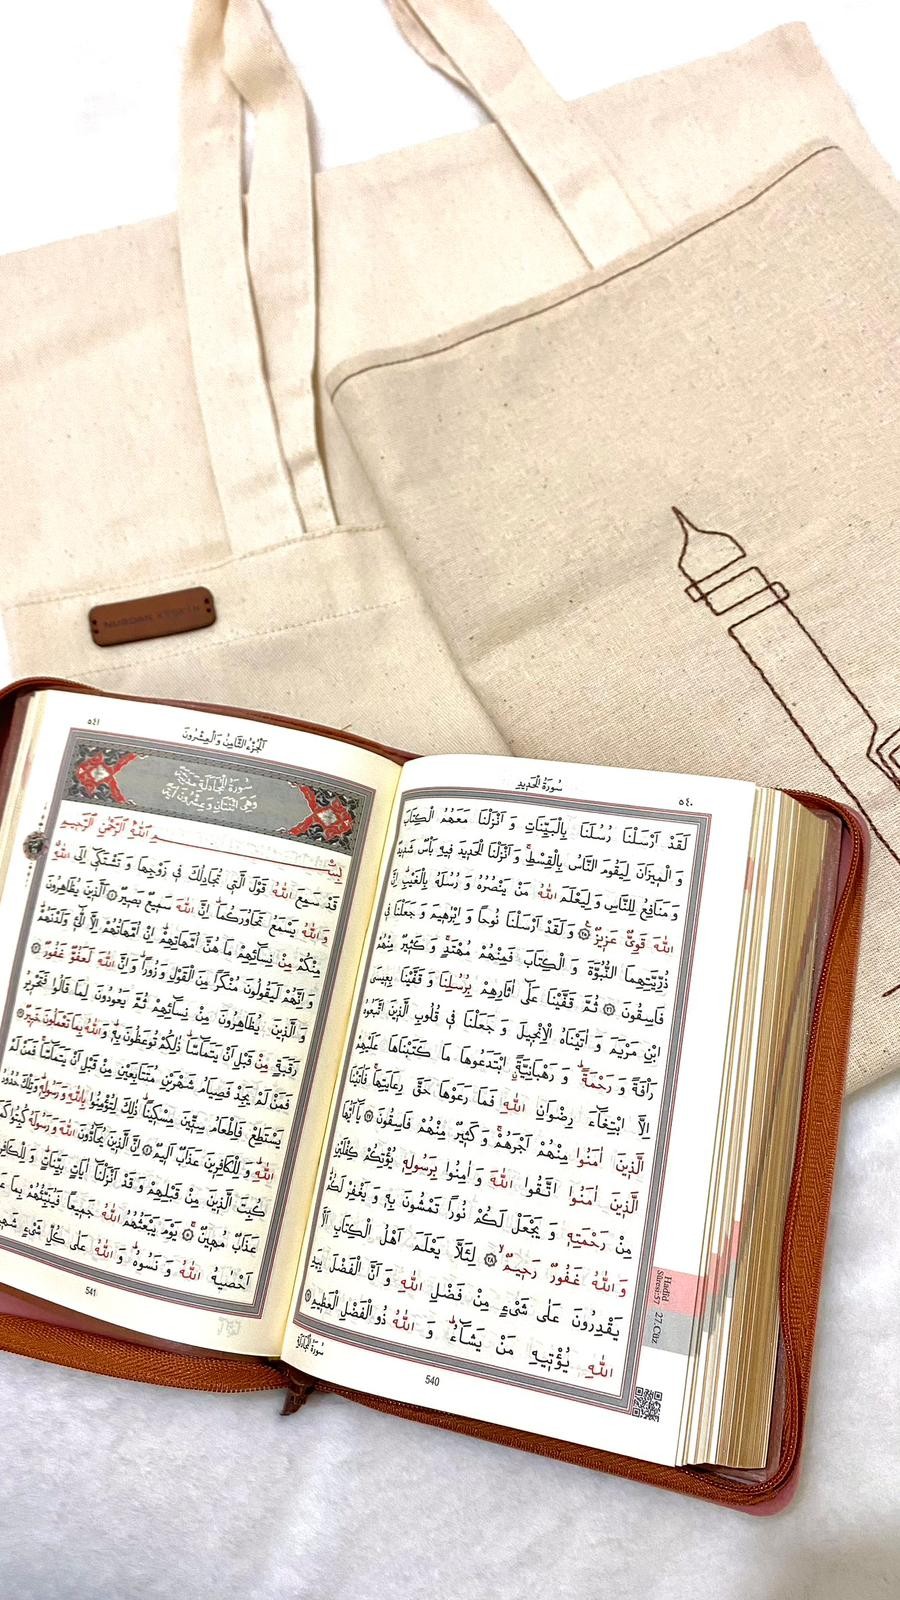 سُورَةُ الْحَدِيدِ
٥٤٠
لَقَدْ اَرْسَلْنَا رُسُلَنَا بِالْبَيِّنَاتِ وَ اَنْزَلْنَا مَعَهُمُ الْكِتَابَ
وَ الْمِيزَانَ لِيَقُومَ النَّاسُ بِالْقِسْطِۚ وَ اَنْزَلْنَا الْحَدِيدَ فِيهِ بَأْسٌ شَدِيدٌ
وَ مَنَافِعُ لِلنَّاسِ وَ لِيَعْلَمَ اللّٰهُ مَنْ يَنْصُرُهُ وَ رُسُلَهُ بِالْغَيْبِۜ اِنَّ
اللّٰهَ قَوِىٌّ عَزِيزٌ ﴿٢٥﴾ وَ لَقَدْ اَرْسَلْنَا نُوحاً وَ اِبْرٰهِيمَ وَ جَعَلْنَا فِى
ذُرِّيَّتِهِمَا النُّبُوَّةَ وَ الْكِتَابَ فَمِنْهُمْ مُهْتَدٍۚ وَ كَثِيرٌ مِنْهُمْ
فَاسِقُونَ ﴿٢٦﴾ ثُمَّ قَفَّيْنَا عَلٰٓى اٰثَارِهِمْ بِرُسُلِنَا وَ قَفَّيْنَا بِعِيسَى
ابْنِ مَرْيَمَ وَ اٰتَيْنَاهُ الْاِنْجِيلَ وَ جَعَلْنَا فِى قُلُوبِ الَّذِينَ اتَّبَعُوهُ
رَأْفَةً وَ رَحْمَةًۜ وَ رَهْبَانِيَّةًۨ ابْتَدَعُوهَا مَا كَتَبْنَاهَا عَلَيْهِمْ
اِلَّا ابْتِغَٓاءَ رِضْوَانِ اللّٰهِ فَمَا رَعَوْهَا حَقَّ رِعَايَتِهَاۚ فَاٰتَيْنَا
الَّذِينَ اٰمَنُوا مِنْهُمْ اَجْرَهُمْۚ وَ كَثِيرٌ مِنْهُمْ فَاسِقُونَ ﴿٢٧﴾ يَٓا اَيُّهَا
الَّذِينَ اٰمَنُوا اتَّقُوا اللّٰهَ وَ اٰمِنُوا بِرَسُولِهِ يُؤْتِكُمْ كِفْلَيْنِ
مِنْ رَحْمَتِهِ وَ يَجْعَلْ لَكُمْ نُوراً تَمْشُونَ بِهِ وَ يَغْفِرْ لَكُمْۜ
وَ اللّٰهُ غَفُورٌ رَحِيمٌۙ ﴿٢٨﴾ لِئَلَّا يَعْلَمَ اَهْلُ الْكِتَابِ اَلَّا
يَقْدِرُونَ عَلٰى شَىْءٍ مِنْ فَضْلِ اللّٰهِ وَ اَنَّ الْفَضْلَ بِيَدِ
اللّٰهِ يُؤْتِيهِ مَنْ يَشَٓاءُۜ وَ اللّٰهُ ذُو الْفَضْلِ الْعَظِيمِ ﴿٢٩﴾
سُورَةُ الْمُجَادَلَةِ
540
Hadid
Sûresi-57
27.Cüz
٥٤١
اَلْجُزْءُ الثَّامِنُ وَ الْعِشْرُونَ
سُورَةُ الْمُجَادَلَةِ مَدَنِيَّةٌ
وَهِىَ اثْنَتَانِ وَعِشْرُونَ اٰيَةً
بِسْــــمِ اللّٰهِ الرَّحْمٰنِ الرَّحِيمِ
قَدْ سَمِعَ اللّٰهُ قَوْلَ الَّتِى تُجَادِلُكَ فِى زَوْجِهَا وَ تَشْتَكِٓى اِلَى اللّٰهِۗ
وَ اللّٰهُ يَسْمَعُ تَحَاوُرَكُمَاۜ اِنَّ اللّٰهَ سَمِيعٌ بَصِيرٌ ﴿١﴾ اَلَّذِينَ يُظَاهِرُونَ
مِنْكُمْ مِنْ نِسَٓائِهِمْ مَا هُنَّ اُمَّهَاتِهِمْۜ اِنْ اُمَّهَاتُهُمْ اِلَّا الّٰٓـِٔى وَلَدْنَهُمْۜ
وَ اِنَّهُمْ لَيَقُولُونَ مُنْكَراً مِنَ الْقَوْلِ وَ زُوراًۜ وَ اِنَّ اللّٰهَ لَعَفُوٌّ غَفُورٌ ﴿٢﴾
وَ الَّذِينَ يُظَاهِرُونَ مِنْ نِسَٓائِهِمْ ثُمَّ يَعُودُونَ لِمَا قَالُوا فَتَحْرِيرُ
رَقَبَةٍ مِنْ قَبْلِ اَنْ يَتَمَٓاسَّاۜ ذٰلِكُمْ تُوعَظُونَ بِهِۜ وَ اللّٰهُ بِمَا تَعْمَلُونَ خَبِيرٌ ﴿٣﴾
فَمَنْ لَمْ يَجِدْ فَصِيَامُ شَهْرَيْنِ مُتَتَابِعَيْنِ مِنْ قَبْلِ اَنْ يَتَمَٓاسَّاۚ فَمَنْ لَمْ
يَسْتَطِعْ فَاِطْعَامُ سِتِّينَ مِسْكِيناًۜ ذٰلِكَ لِتُؤْمِنُوا بِاللّٰهِ وَ رَسُولِهِۜ وَ تِلْكَ حُدُودُ
اللّٰهِۜ وَ لِلْكَافِرِينَ عَذَابٌ اَلِيمٌ ﴿٤﴾ اِنَّ الَّذِينَ يُحَٓادُّونَ اللّٰهَ وَ رَسُولَهُ كُبِتُوا كَمَا
كُبِتَ الَّذِينَ مِنْ قَبْلِهِمْ وَ قَدْ اَنْزَلْنَٓا اٰيَاتٍ بَيِّنَاتٍۜ وَ لِلْكَافِرِينَ
عَذَابٌ مُهِينٌۚ ﴿٥﴾ يَوْمَ يَبْعَثُهُمُ اللّٰهُ جَمِيعاً فَيُنَبِّئُهُمْ بِمَا
اَحْصٰيهُ اللّٰهُ وَ نَسُوهُۜ وَ اللّٰهُ عَلٰى كُلِّ شَىْءٍ
541